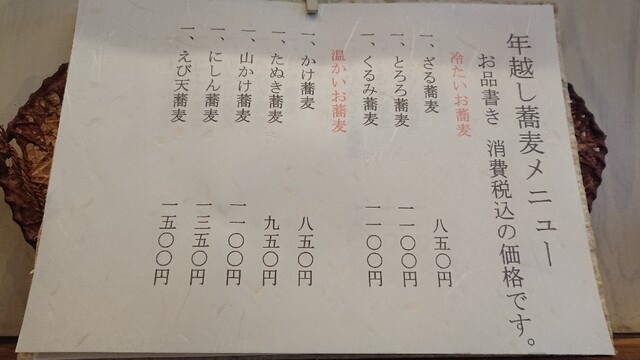 年越し蕎麦メニュー
お品書き　消費税込の価格です。
冷たいお蕎麦
一、ざる蕎麦　八五〇円
一、とろろ蕎麦　一一〇〇円
一、くるみ蕎麦　一一〇〇円
温かいお蕎麦
一、かけ蕎麦　八五〇円
一、たぬき蕎麦　九五〇円
一、山かけ蕎麦　一一〇〇円
一、にしん蕎麦　一三五〇円
一、えび天蕎麦　一五〇〇円